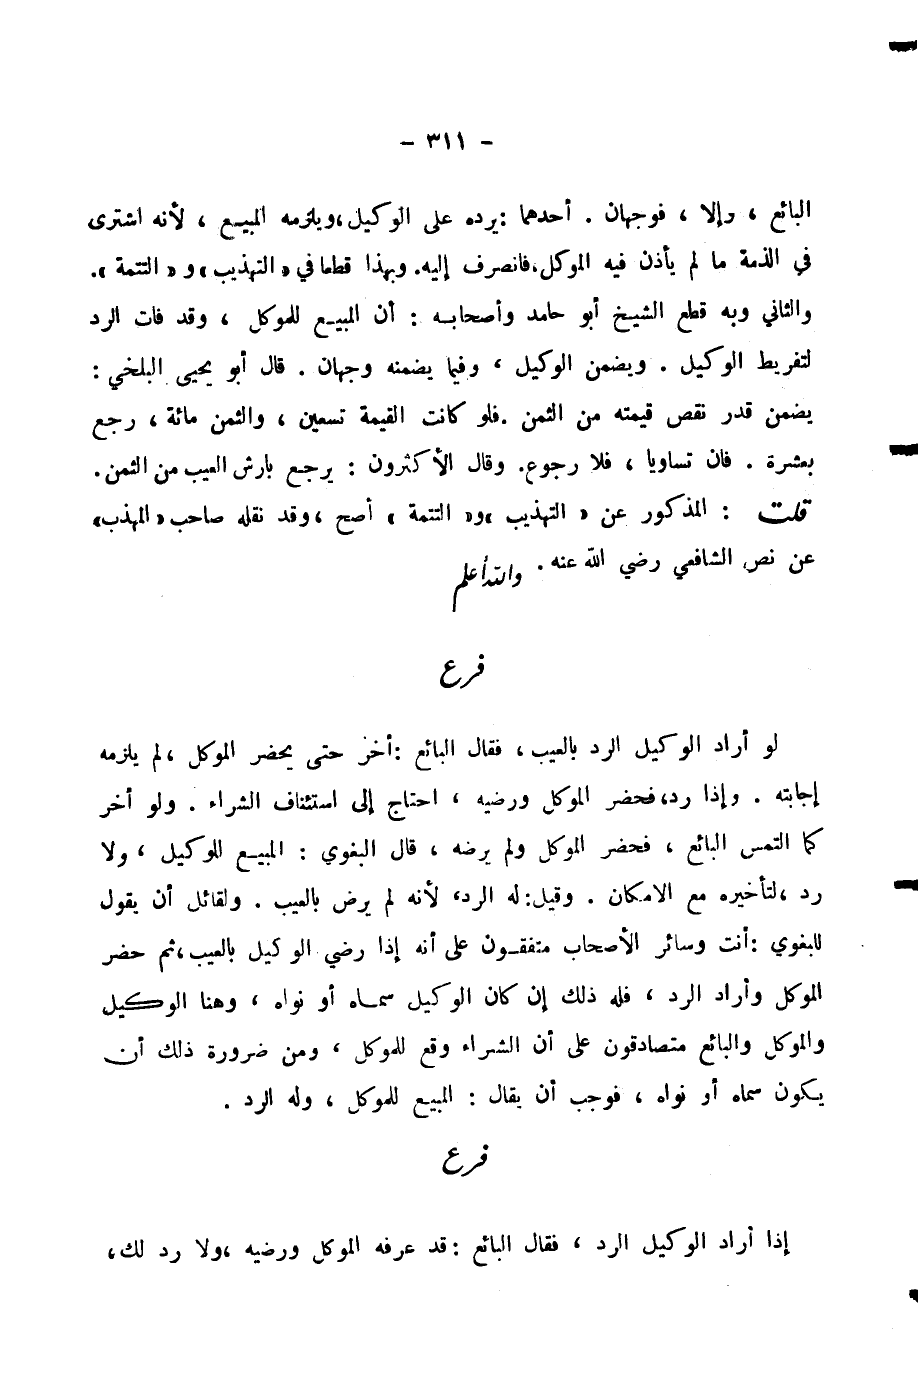 - ٣١١ -
البائع ، وإلا ، فوجهان . أحدهما : يرده على الوكيل ، ويلزمه المبيع ، لأنه اشترى
في الذمة ما لم يأذن فيه الموكل ، فانصرف إليه . وبهذا قطعا في « التهذيب » و « التتمة » .
والثاني وبه قطع الشيخ أبو حامد وأصحابه : أن المبيع للموكل ، وقد فات الرد
لتفريط الوكيل . ويضمن الوكيل ، وفيما يضمنه وجهان . قال أبو يحيى البلخي :
يضمن قدر نقص قيمته من الثمن . فلو كانت القيمة تسعين ، والثمن مائة ، رجع
بعشرة . فان تساويا ، فلا رجوع . وقال الأكثرون : يرجع بارش العيب من الثمن .
قلت : المذكور عن « التهذيب » و « التتمة » أصح ، وقد نقله صاحب « المهذب »
عن نص الشافعي رضي الله عنه . والله أعلم
فرع
لو أراد الوكيل الرد بالعيب ، فقال البائع : أخر حتى يحضر الموكل ، لم يلزمه
إجابته . وإذا رد ، فحضر الموكل ورضيه ، احتاج إلى استئناف الشراء . ولو أخر
كما التمس البائع ، فحضر الموكل ولم يرضه ، قال البغوي : المبيع للوكيل ، ولا
رد ، لتأخيره مع الامكان . وقيل : له الرد ، لأنه لم يرض بالعيب . ولقائل أن يقول
للبغوي : أنت وسائر الأصحاب متفقون على أنه إذا رضي الوكيل بالعيب ، ثم حضر
الموكل وأراد الرد ، فله ذلك إن كان الوكيل سماه أو نواه ، وهنا الوكيل
والموكل والبائع متصادقون على أن الشراء وقع للموكل ، ومن ضرورة ذلك أن
يكون سماه أو نواه ، فوجب أن يقال : المبيع للموكل ، وله الرد .
فرع
إذا أراد الوكيل الرد ، فقال البائع : قد عرفه الموكل ورضيه ، ولا رد لك ،